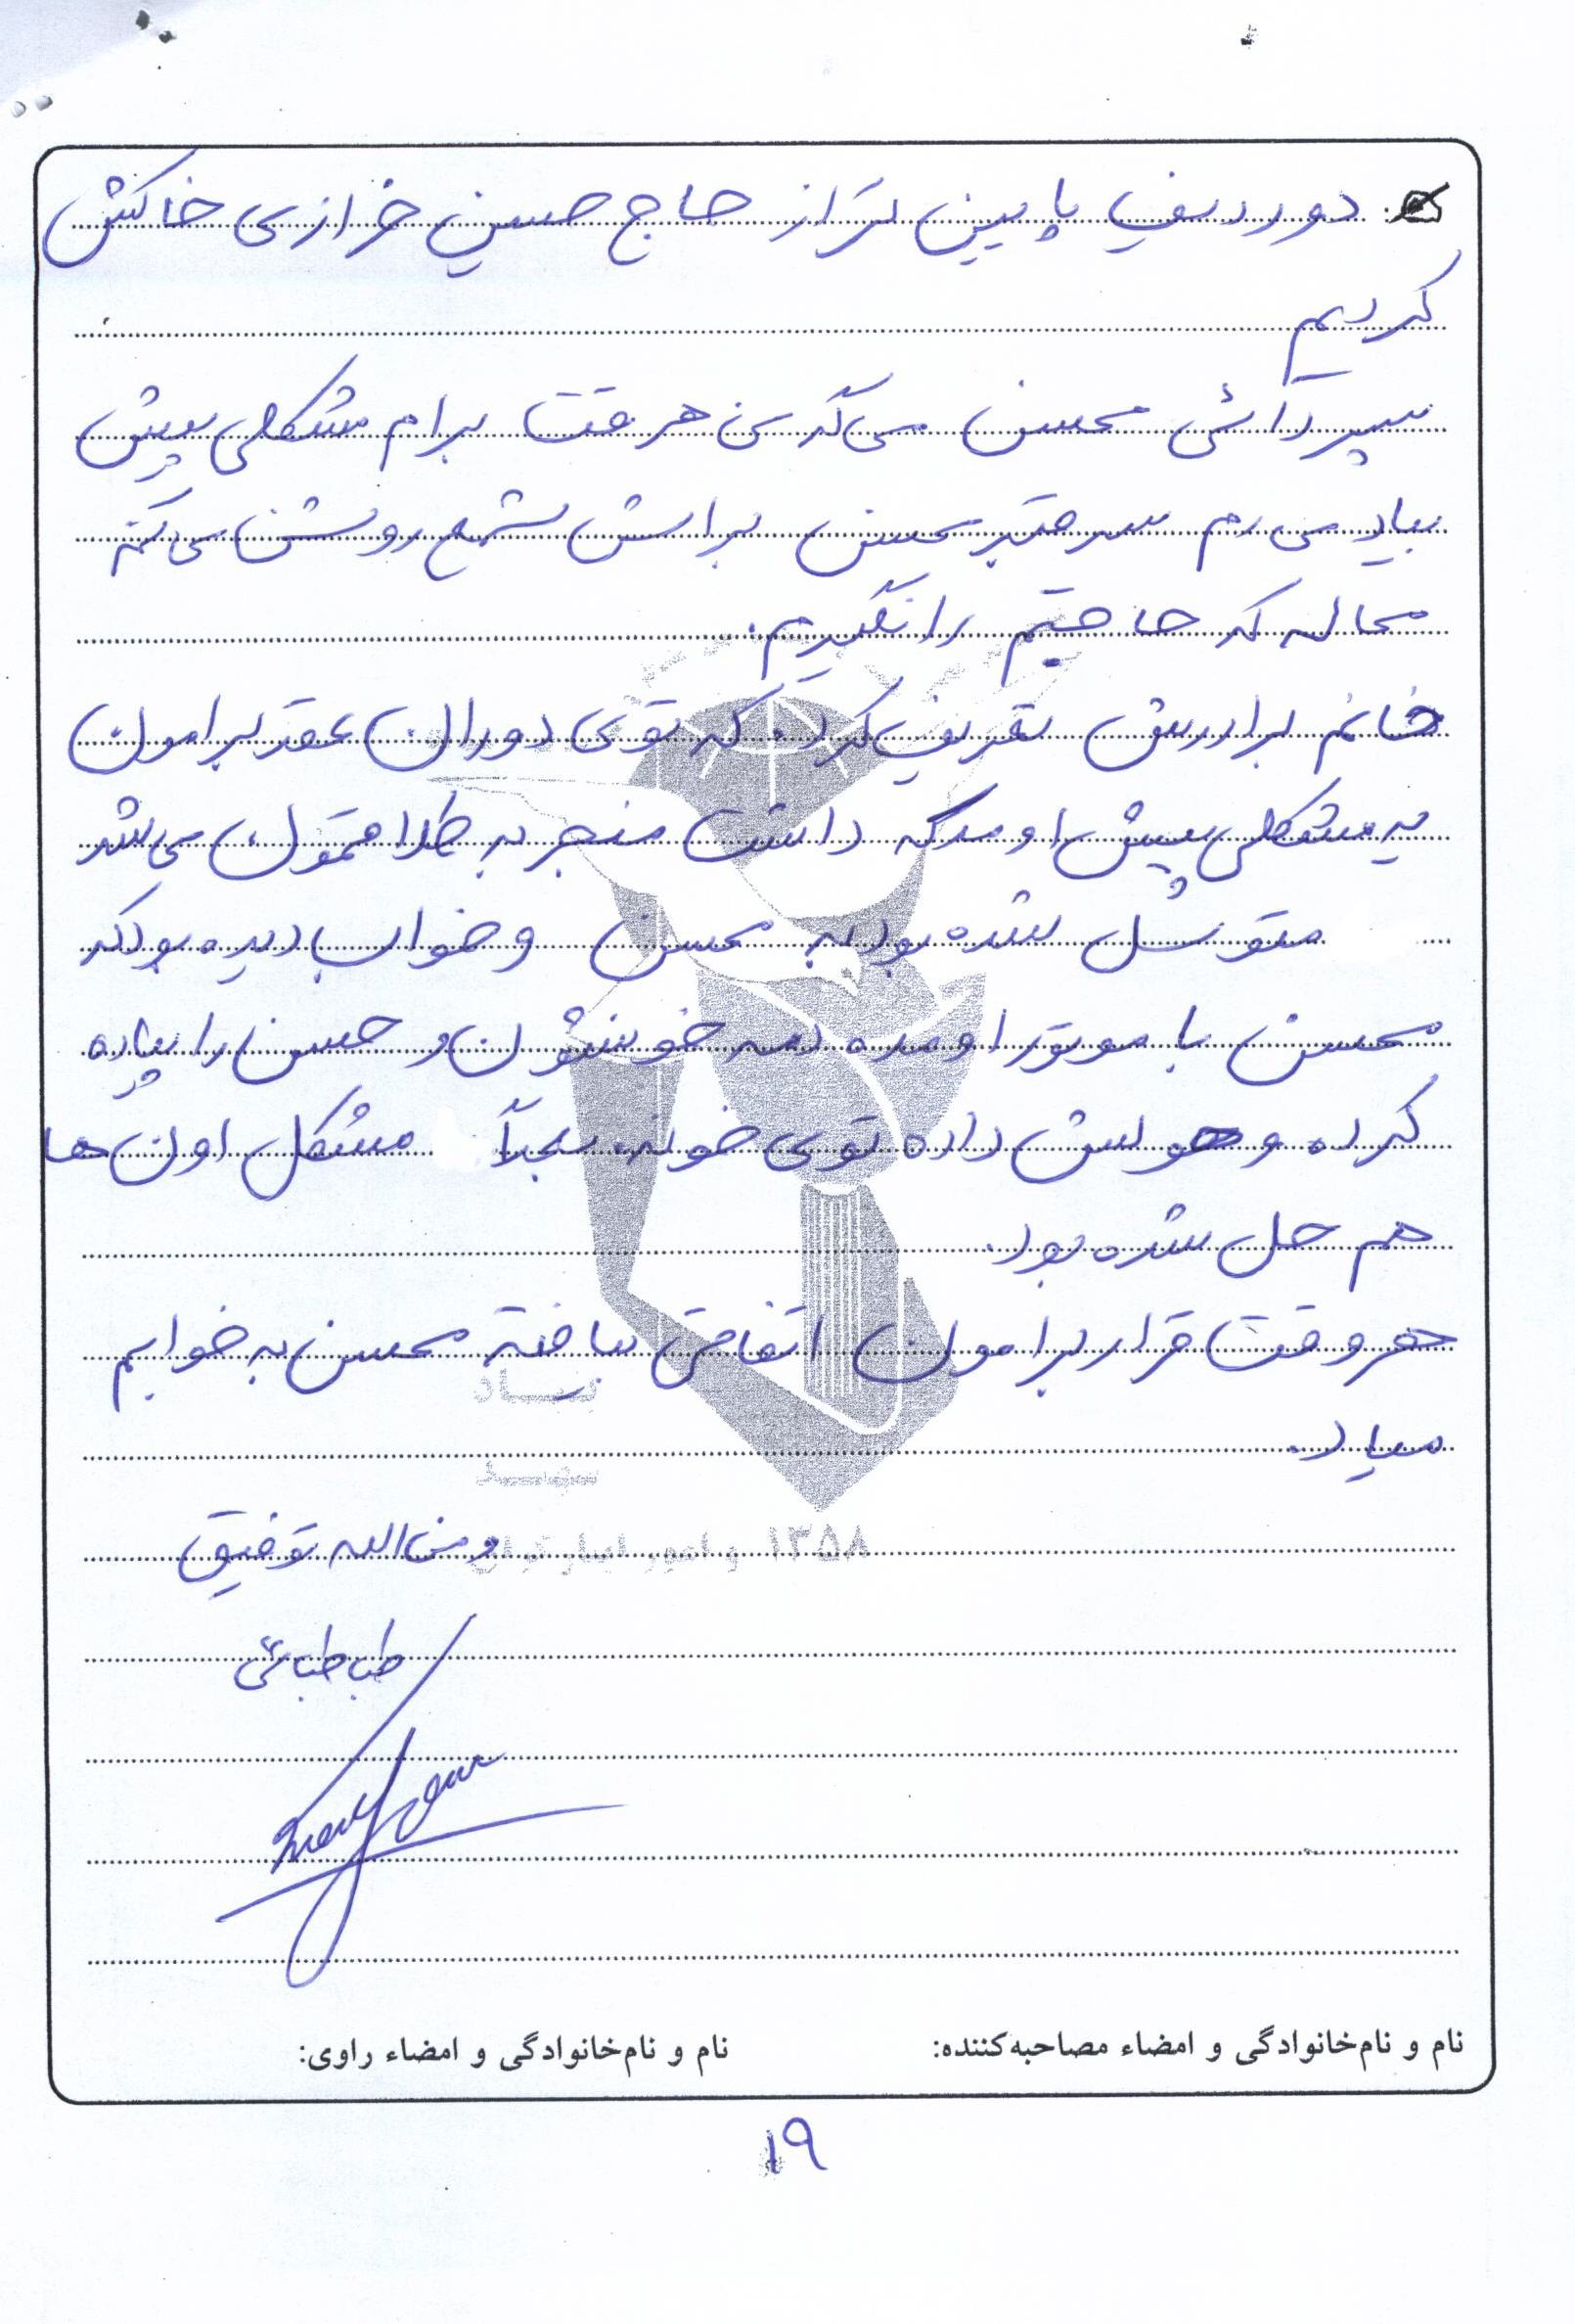 دو ردیف پایین تر از حاج حسین خرازی خاکش
کردیم
پسر دائی محسن می گه من هر وقت برام مشکلی پیش
بیاد می رم سر قبر محسن براش شمع روشن می کنم
محاله که حاجتم را نگیرم.
خانم برادرش تعریف کرد. که توی دوران عقد برامون
یه مشکلی پیش اومد که داشت منجر به طلاقمون می شد
متوسل شده بود به محسن و خواب دیده بود که
محسن با موتور اومده دمه خونشون و حسن را پیاده
کرده و هولش داده توی خونه. بعداً مشکل اون ها
هم حل شده بود.
هر وقت قرار برامون اتفاقی بیافته محسن به خوابم
میاد.
بنیاد
شهید
و امور ایثارگران ۱۳۵۸
و من الله توفیق
طباطبائی
نام و نام‌خانوادگی و امضاء مصاحبه‌کننده: نام و نام‌خانوادگی و امضاء راوی:
۱۹